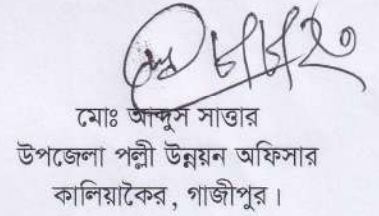 মোঃ আব্দুস সাত্তার
উপজেলা পল্লী উন্নয়ন অফিসার
কালিয়াকৈর, গাজীপুর।